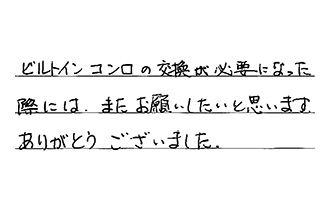 ビルトインコンロの交換が必要になった
際には、またお願いしたいと思います
ありがとうございました.